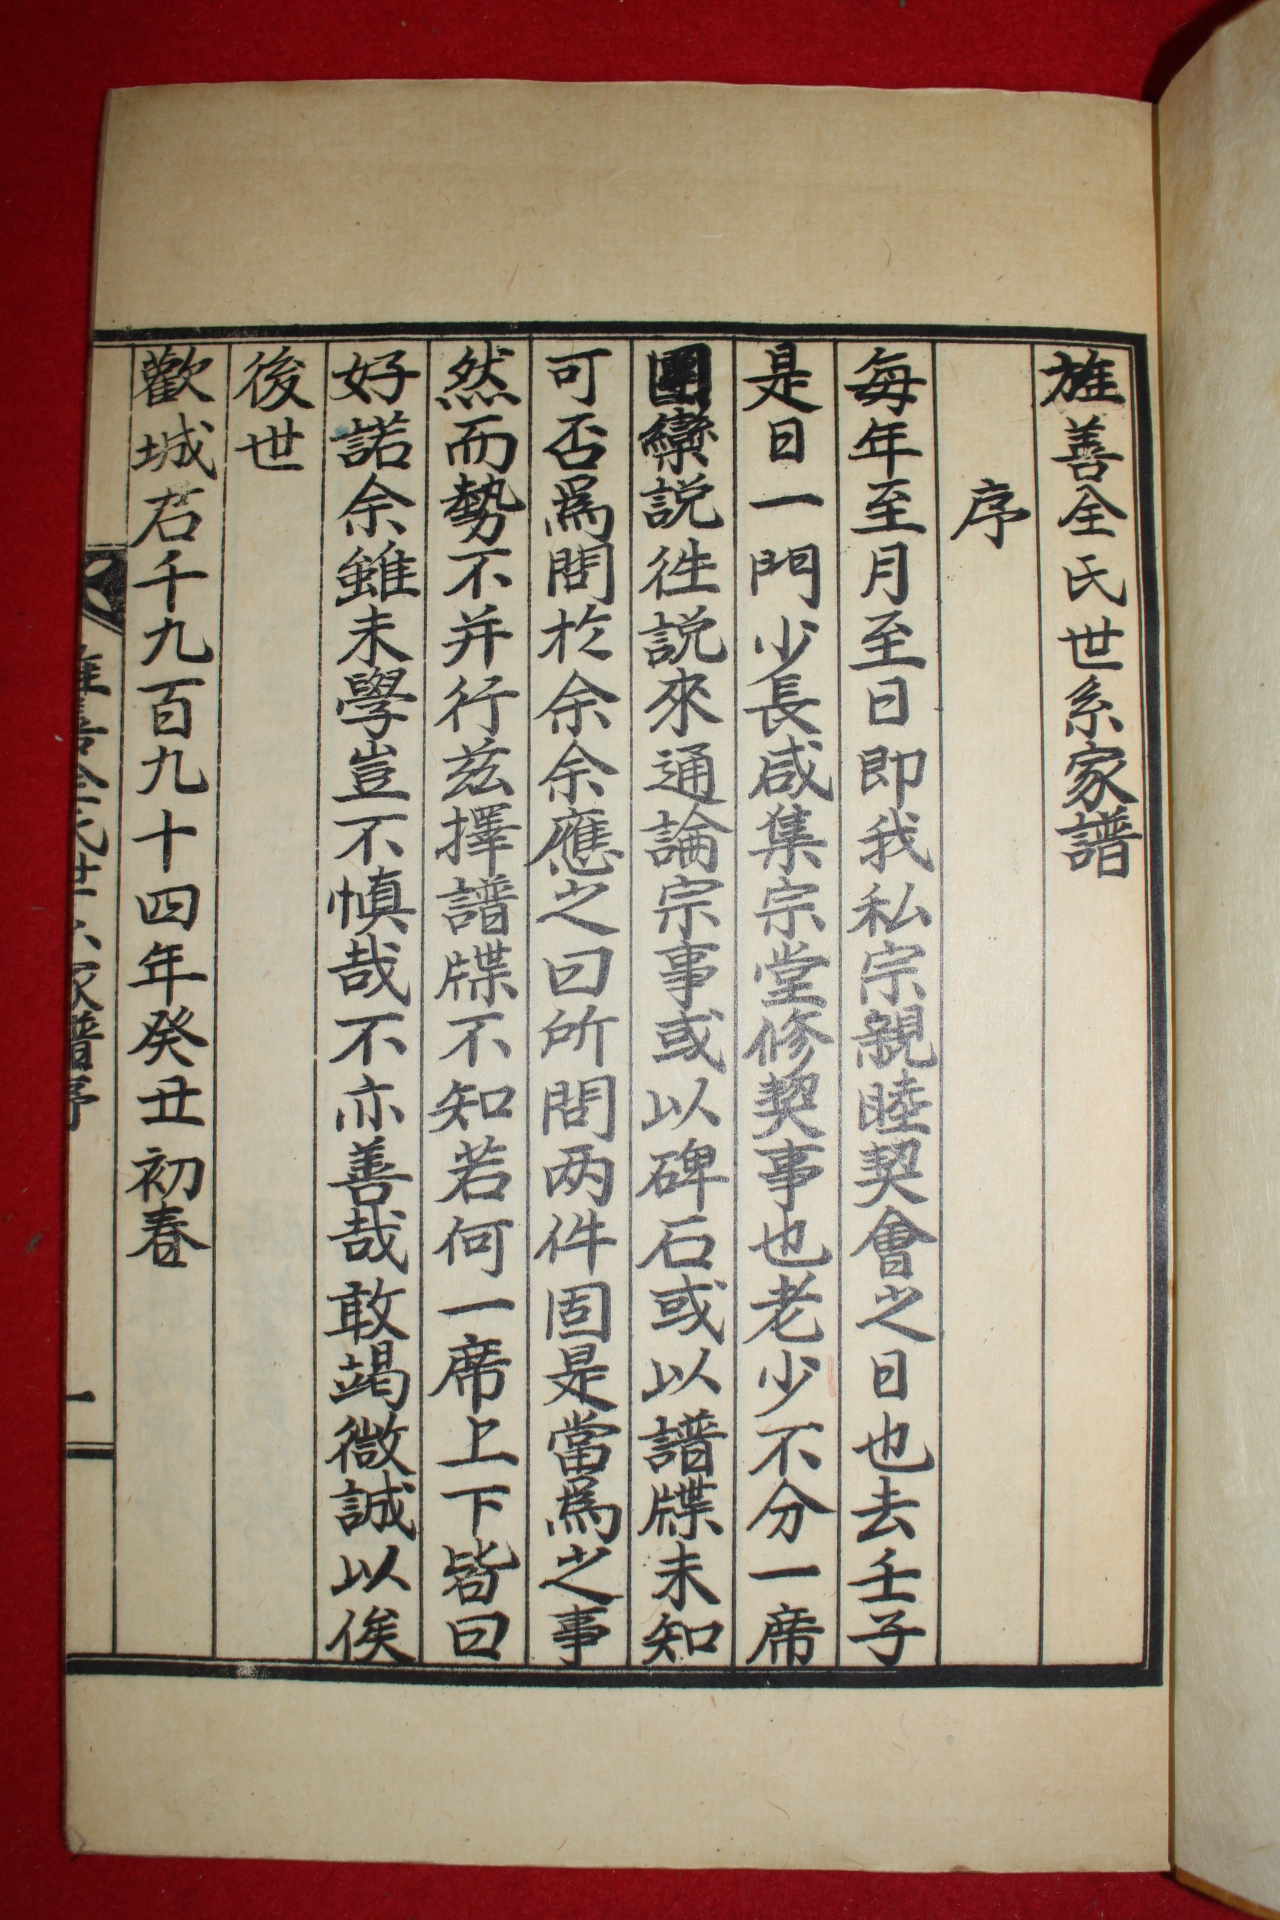 旌善全氏世系家譜
序
每年至月至日即我私宗親睦契會之日也去壬子
是日一門少長咸集宗堂修契事也老少不分一席
團欒説徃説來通論宗事或以碑石或以譜牒未知
可否爲問於余余應之曰所問两件固是當爲之事
然而勢不并行兹擇譜牒不知若何一席上下皆曰
好諾余雖未學豈不愼哉不亦善哉敢竭微誠以俟
後世
歡城君千九百九十四年癸丑初春
旌善全氏世系家譜序
一